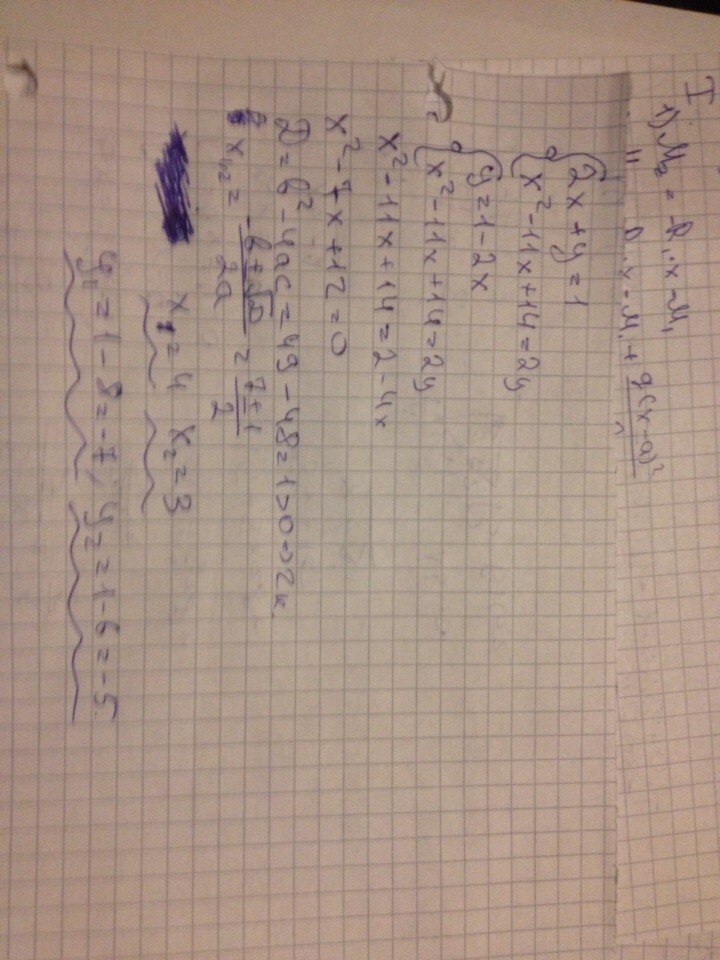 I
1) M₂ = R₁·x - M₁
g(x-a)²
{ 2x+y=1
{ x²-11x+14=2y
{ y=1-2x
{ x²-11x+14=2y
x²-11x+14=2-4x
x²-7x+12=0
D=b²-4ac=49-48=1>0⇒2к.
x₁,₂ = -b±√D / 2a = 7±1 / 2
x₁=4 x₂=3
y₁=1-8=-7; y₂=1-6=-5